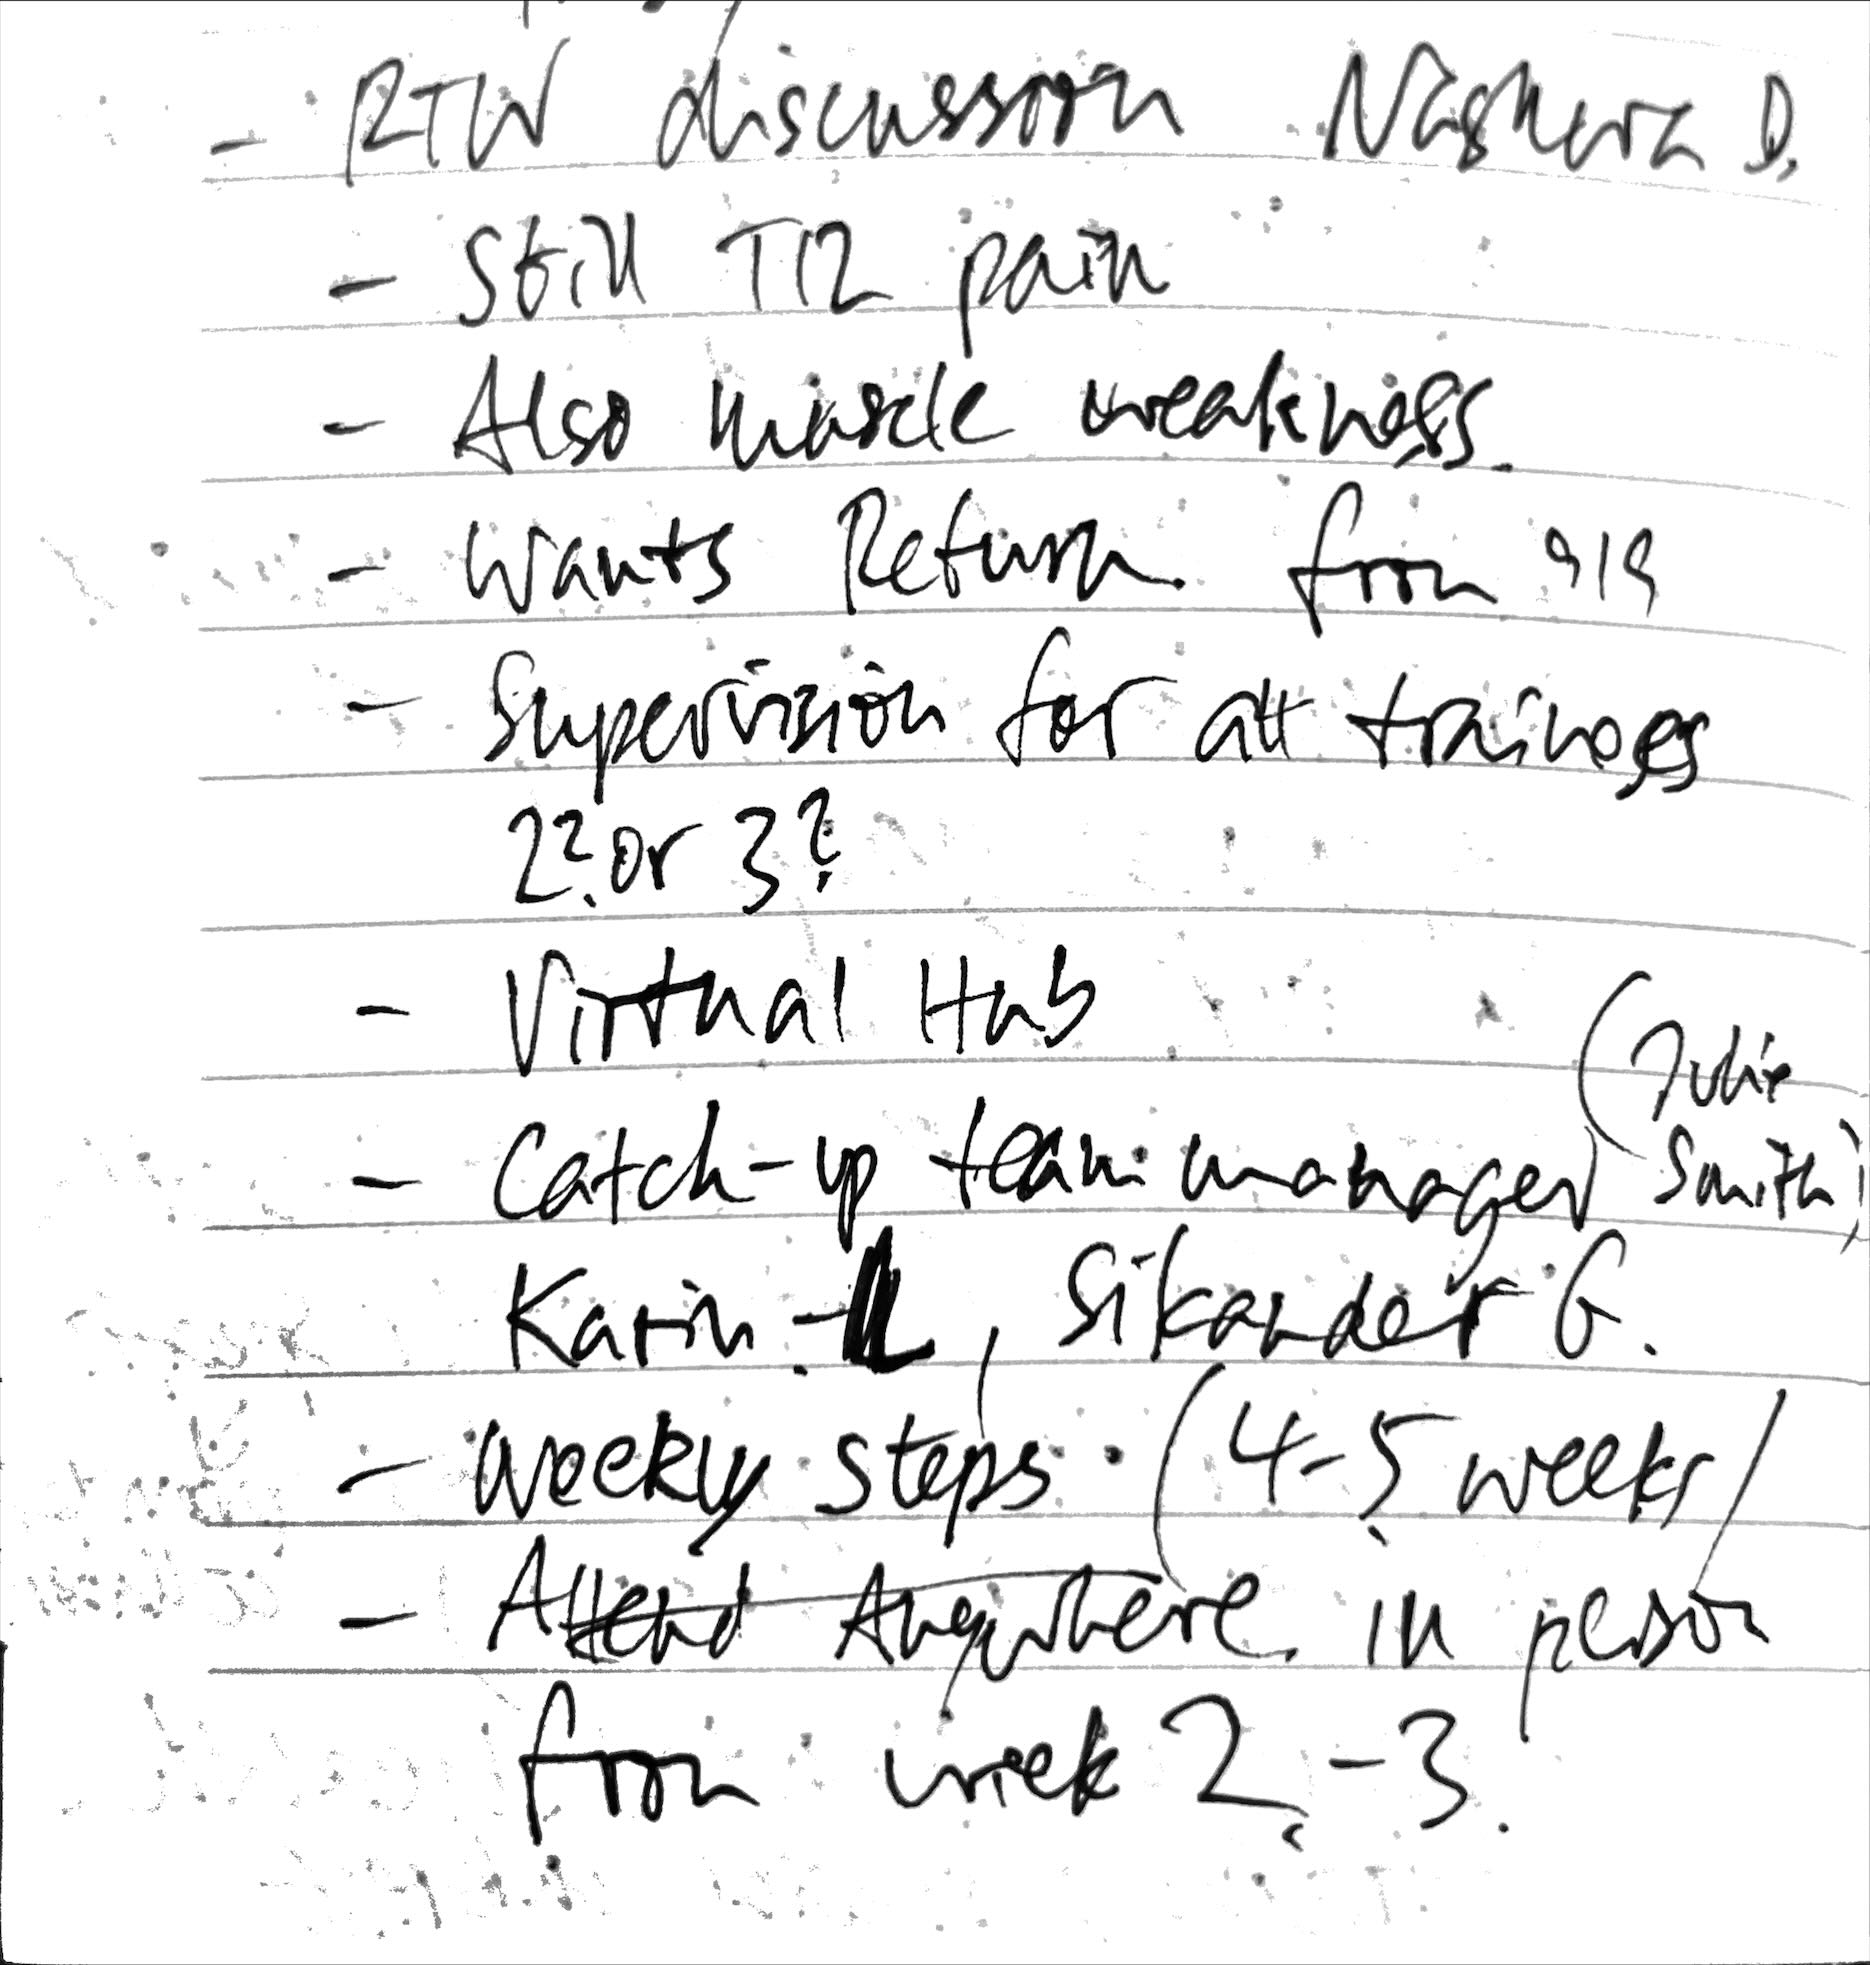 - RTW discussion Nashwa D.
- Still T12 pain
- Also muscle weakness.
- Wants Return from 9/9
- Supervision for all trainees
2? or 3?
- Virtual Hub
- Catch-up team manager (Julie Smith)
Karin, Sikander G.
- Weekly steps (4-5 weeks)
- Attend Anywhere. in person
from week 2-3.